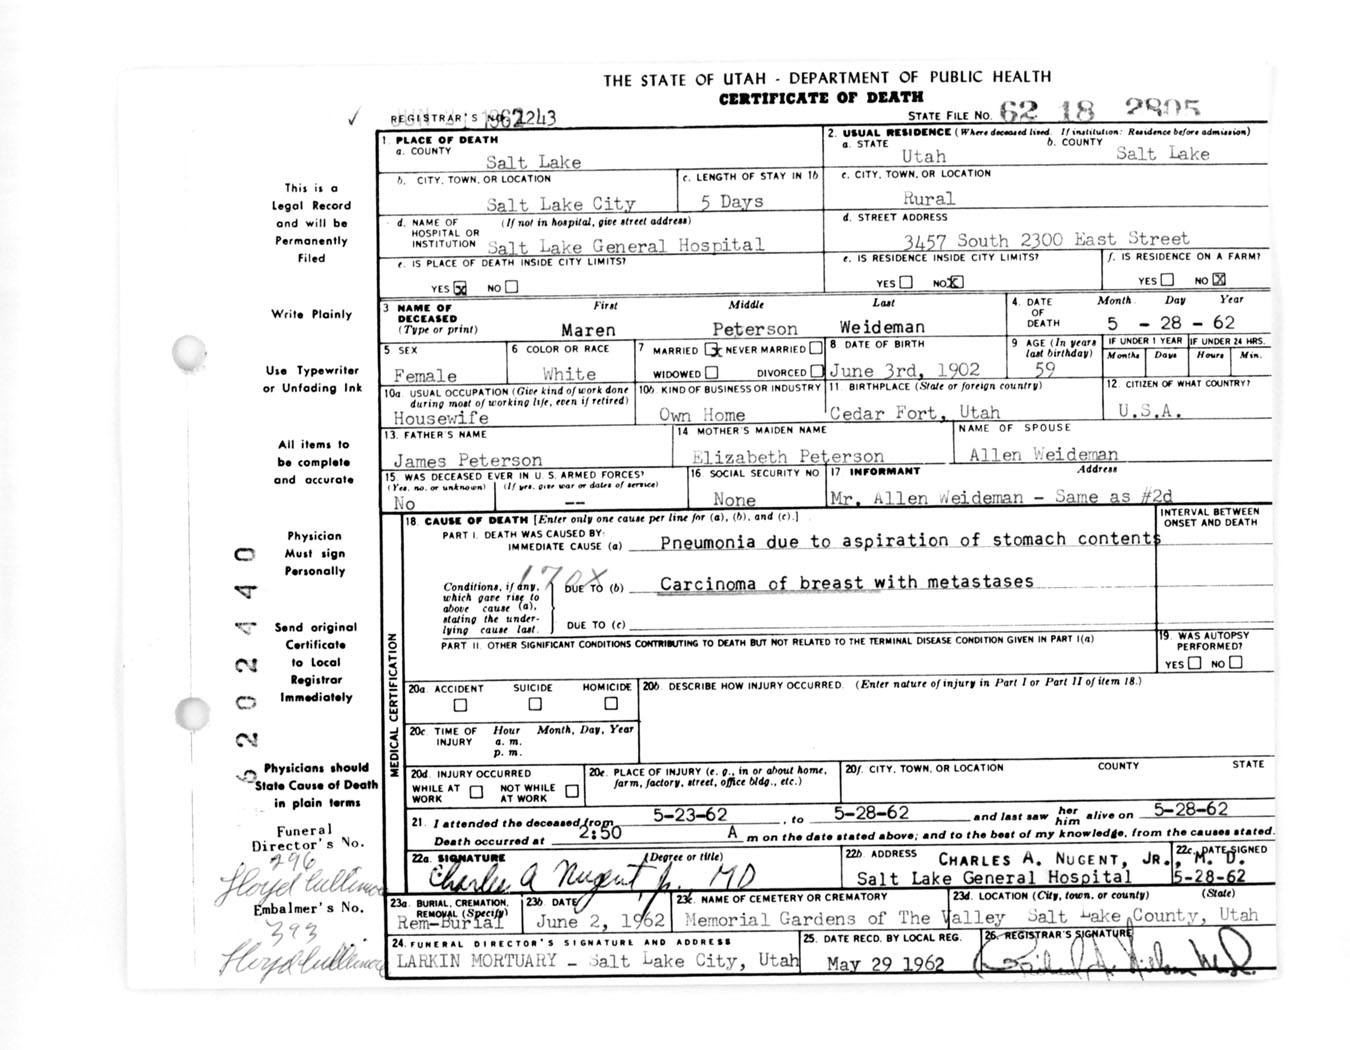 THE STATE OF UTAH - DEPARTMENT OF PUBLIC HEALTH
CERTIFICATE OF DEATH
REGISTRAR'S No. 1243
STATE FILE NO. 62 18 2805
1. PLACE OF DEATH
a. COUNTY
Salt Lake
2. USUAL RESIDENCE (Where deceased lived. If institution: Residence before admission)
a. STATE
Utah
b. COUNTY
Salt Lake
b. CITY, TOWN, OR LOCATION
Salt Lake City
c. LENGTH OF STAY IN 1b
5 Days
c. CITY, TOWN, OR LOCATION
Rural
d. NAME OF HOSPITAL OR INSTITUTION
(If not in hospital, give street address)
Salt Lake General Hospital
d. STREET ADDRESS
3457 South 2300 East Street
e. IS PLACE OF DEATH INSIDE CITY LIMITS?
YES X NO
e. IS RESIDENCE INSIDE CITY LIMITS?
YES NO X
f. IS RESIDENCE ON A FARM?
YES NO X
3 NAME OF DECEASED (Type or print)
First Middle Last
Maren Peterson Weideman
4. DATE OF DEATH
Month Day Year
5 - 28 - 62
5 SEX
Female
6 COLOR OR RACE
White
7 MARRIED X NEVER MARRIED
WIDOWED DIVORCED
8 DATE OF BIRTH
June 3rd, 1902
9 AGE (In years last birthday)
59
IF UNDER 1 YEAR
Months Days
IF UNDER 24 HRS.
Hours Min.
10a. USUAL OCCUPATION (Give kind of work done during most of working life, even if retired)
Housewife
10b. KIND OF BUSINESS OR INDUSTRY
Own Home
11 BIRTHPLACE (State or foreign country)
Cedar Fort, Utah
12. CITIZEN OF WHAT COUNTRY?
U.S.A.
13. FATHER'S NAME
James Peterson
14 MOTHER'S MAIDEN NAME
Elizabeth Peterson
NAME OF SPOUSE
Allen Weideman
15. WAS DECEASED EVER IN U. S. ARMED FORCES?
(Yes, no, or unknown) (If yes, give war or dates of service)
No --
16 SOCIAL SECURITY NO.
None
17 INFORMANT Address
Mr. Allen Weideman - Same as #2d
18. CAUSE OF DEATH [Enter only one cause per line for (a), (b), and (c).]
INTERVAL BETWEEN ONSET AND DEATH
PART I. DEATH WAS CAUSED BY:
IMMEDIATE CAUSE (a) Pneumonia due to aspiration of stomach contents
170X
Conditions, if any, which gave rise to above cause (a), stating the underlying cause last.
DUE TO (b) Carcinoma of breast with metastases
DUE TO (c)
PART II. OTHER SIGNIFICANT CONDITIONS CONTRIBUTING TO DEATH BUT NOT RELATED TO THE TERMINAL DISEASE CONDITION GIVEN IN PART I(a)
19. WAS AUTOPSY PERFORMED?
YES NO
MEDICAL CERTIFICATION
20a. ACCIDENT SUICIDE HOMICIDE
20b. DESCRIBE HOW INJURY OCCURRED. (Enter nature of injury in Part I or Part II of item 18.)
20c. TIME OF INJURY
Hour Month, Day, Year
a. m.
p. m.
20d. INJURY OCCURRED
WHILE AT WORK NOT WHILE AT WORK
20e. PLACE OF INJURY (e. g., in or about home, farm, factory, street, office bldg., etc.)
20f. CITY, TOWN, OR LOCATION COUNTY STATE
21. I attended the deceased from 5-23-62, to 5-28-62 and last saw her him alive on 5-28-62
Death occurred at 2:50 A m on the date stated above; and to the best of my knowledge, from the causes stated.
22a. SIGNATURE (Degree or title)
Charles A Nugent Jr. MD
22b. ADDRESS
CHARLES A. NUGENT, JR., M. D.
Salt Lake General Hospital
22c. DATE SIGNED
5-28-62
23a. BURIAL, CREMATION, REMOVAL (Specify)
Rem-Burial
23b DATE
June 2, 1962
23c. NAME OF CEMETERY OR CREMATORY
Memorial Gardens of The Valley
23d. LOCATION (City, town, or county) (State)
Salt Lake County, Utah
24. FUNERAL DIRECTOR'S SIGNATURE AND ADDRESS
LARKIN MORTUARY - Salt Lake City, Utah
25. DATE RECD. BY LOCAL REG.
May 29 1962
26. REGISTRAR'S SIGNATURE
This is a
Legal Record
and will be
Permanently
Filed
Write Plainly
Use Typewriter
or Unfading Ink
All items to
be complete
and accurate
Physician
Must sign
Personally
Send original
Certificate
to Local
Registrar
Immediately
Physicians should
State Cause of Death
in plain terms
Funeral
Director's No.
296
Embalmer's No.
393